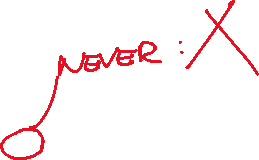 NEVER : X